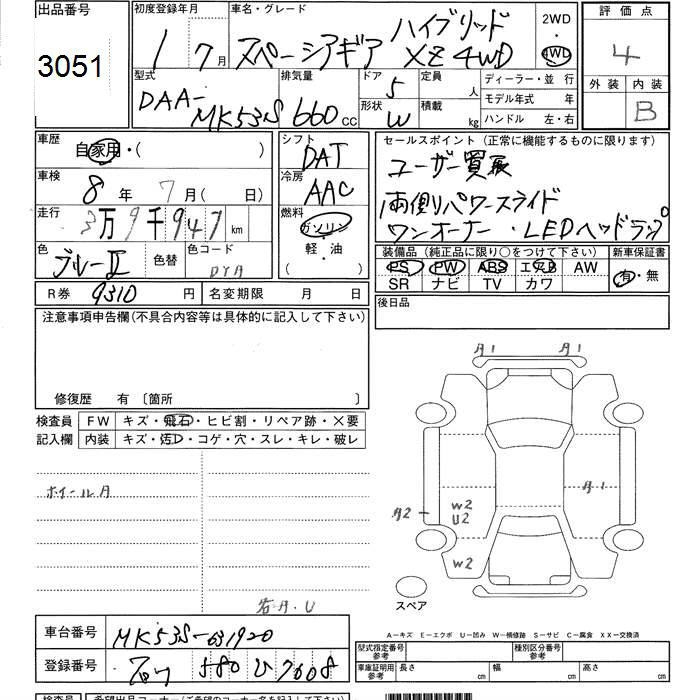 出品番号
3051
初度登録年月
1 / 7月
車名・グレード
スペーシアギア ハイブリッド XZ 4WD
2WD
・
4WD
評価点
4
外装 内装
B
型式
DAA-MK53S
排気量
660 cc
ドア
5
形状
W
定員
人
積載
kg
ディーラー・並 行
モデル年式 年
ハンドル 左・右
車歴
自家用・( )
車検
8年 7月( 日)
走行
3万9千947km
色
ブルーII
色替
色コード
R券 9310 円
名変期限 月 日
シフト
DAT
冷房
AAC
燃料
ガソリン
軽・油
( )
セールスポイント(正常に機能するものに限ります)
ユーザー買取
両側パワースライド
ワンオーナー・LEDヘッドランプ
装備品(純正品に限り○をつけて下さい)
PS PW ABS エアB AW
SR ナビ TV カワ
新車保証書
有・無
後日品
注意事項申告欄(不具合内容等は具体的に記入して下さい)
修復歴 有 〔箇所 〕
検査員
記入欄
FW キズ・飛石・ヒビ割・リペア跡・×要
内装 キズ・汚レ・コゲ・穴・スレ・キレ・破レ
ホイールA
A1 A1
A1
A2
W2
U2
W2
スペア
A-キズ E-エクボ U-凹み W-補修跡 S-サビ C-腐食 XX-交換済
車台番号 MK53S-631920
登録番号 580 ひ 7608
型式指定番号
参考
種別区分番号
参考
車庫証明用
参考
長さ cm
幅 cm
高さ cm
検査員
希望出品コーナー(ご希望のコーナー名を